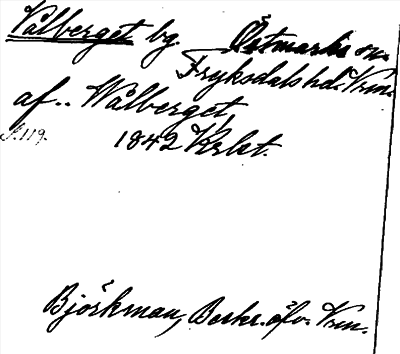 Vålberget bg. Östmarks sn.
Fryksdals hd. Vrm.
af.. Wålberget,
S. 119. 1842 Krlst.
Björkman, Beskr. öfv. Vrm.